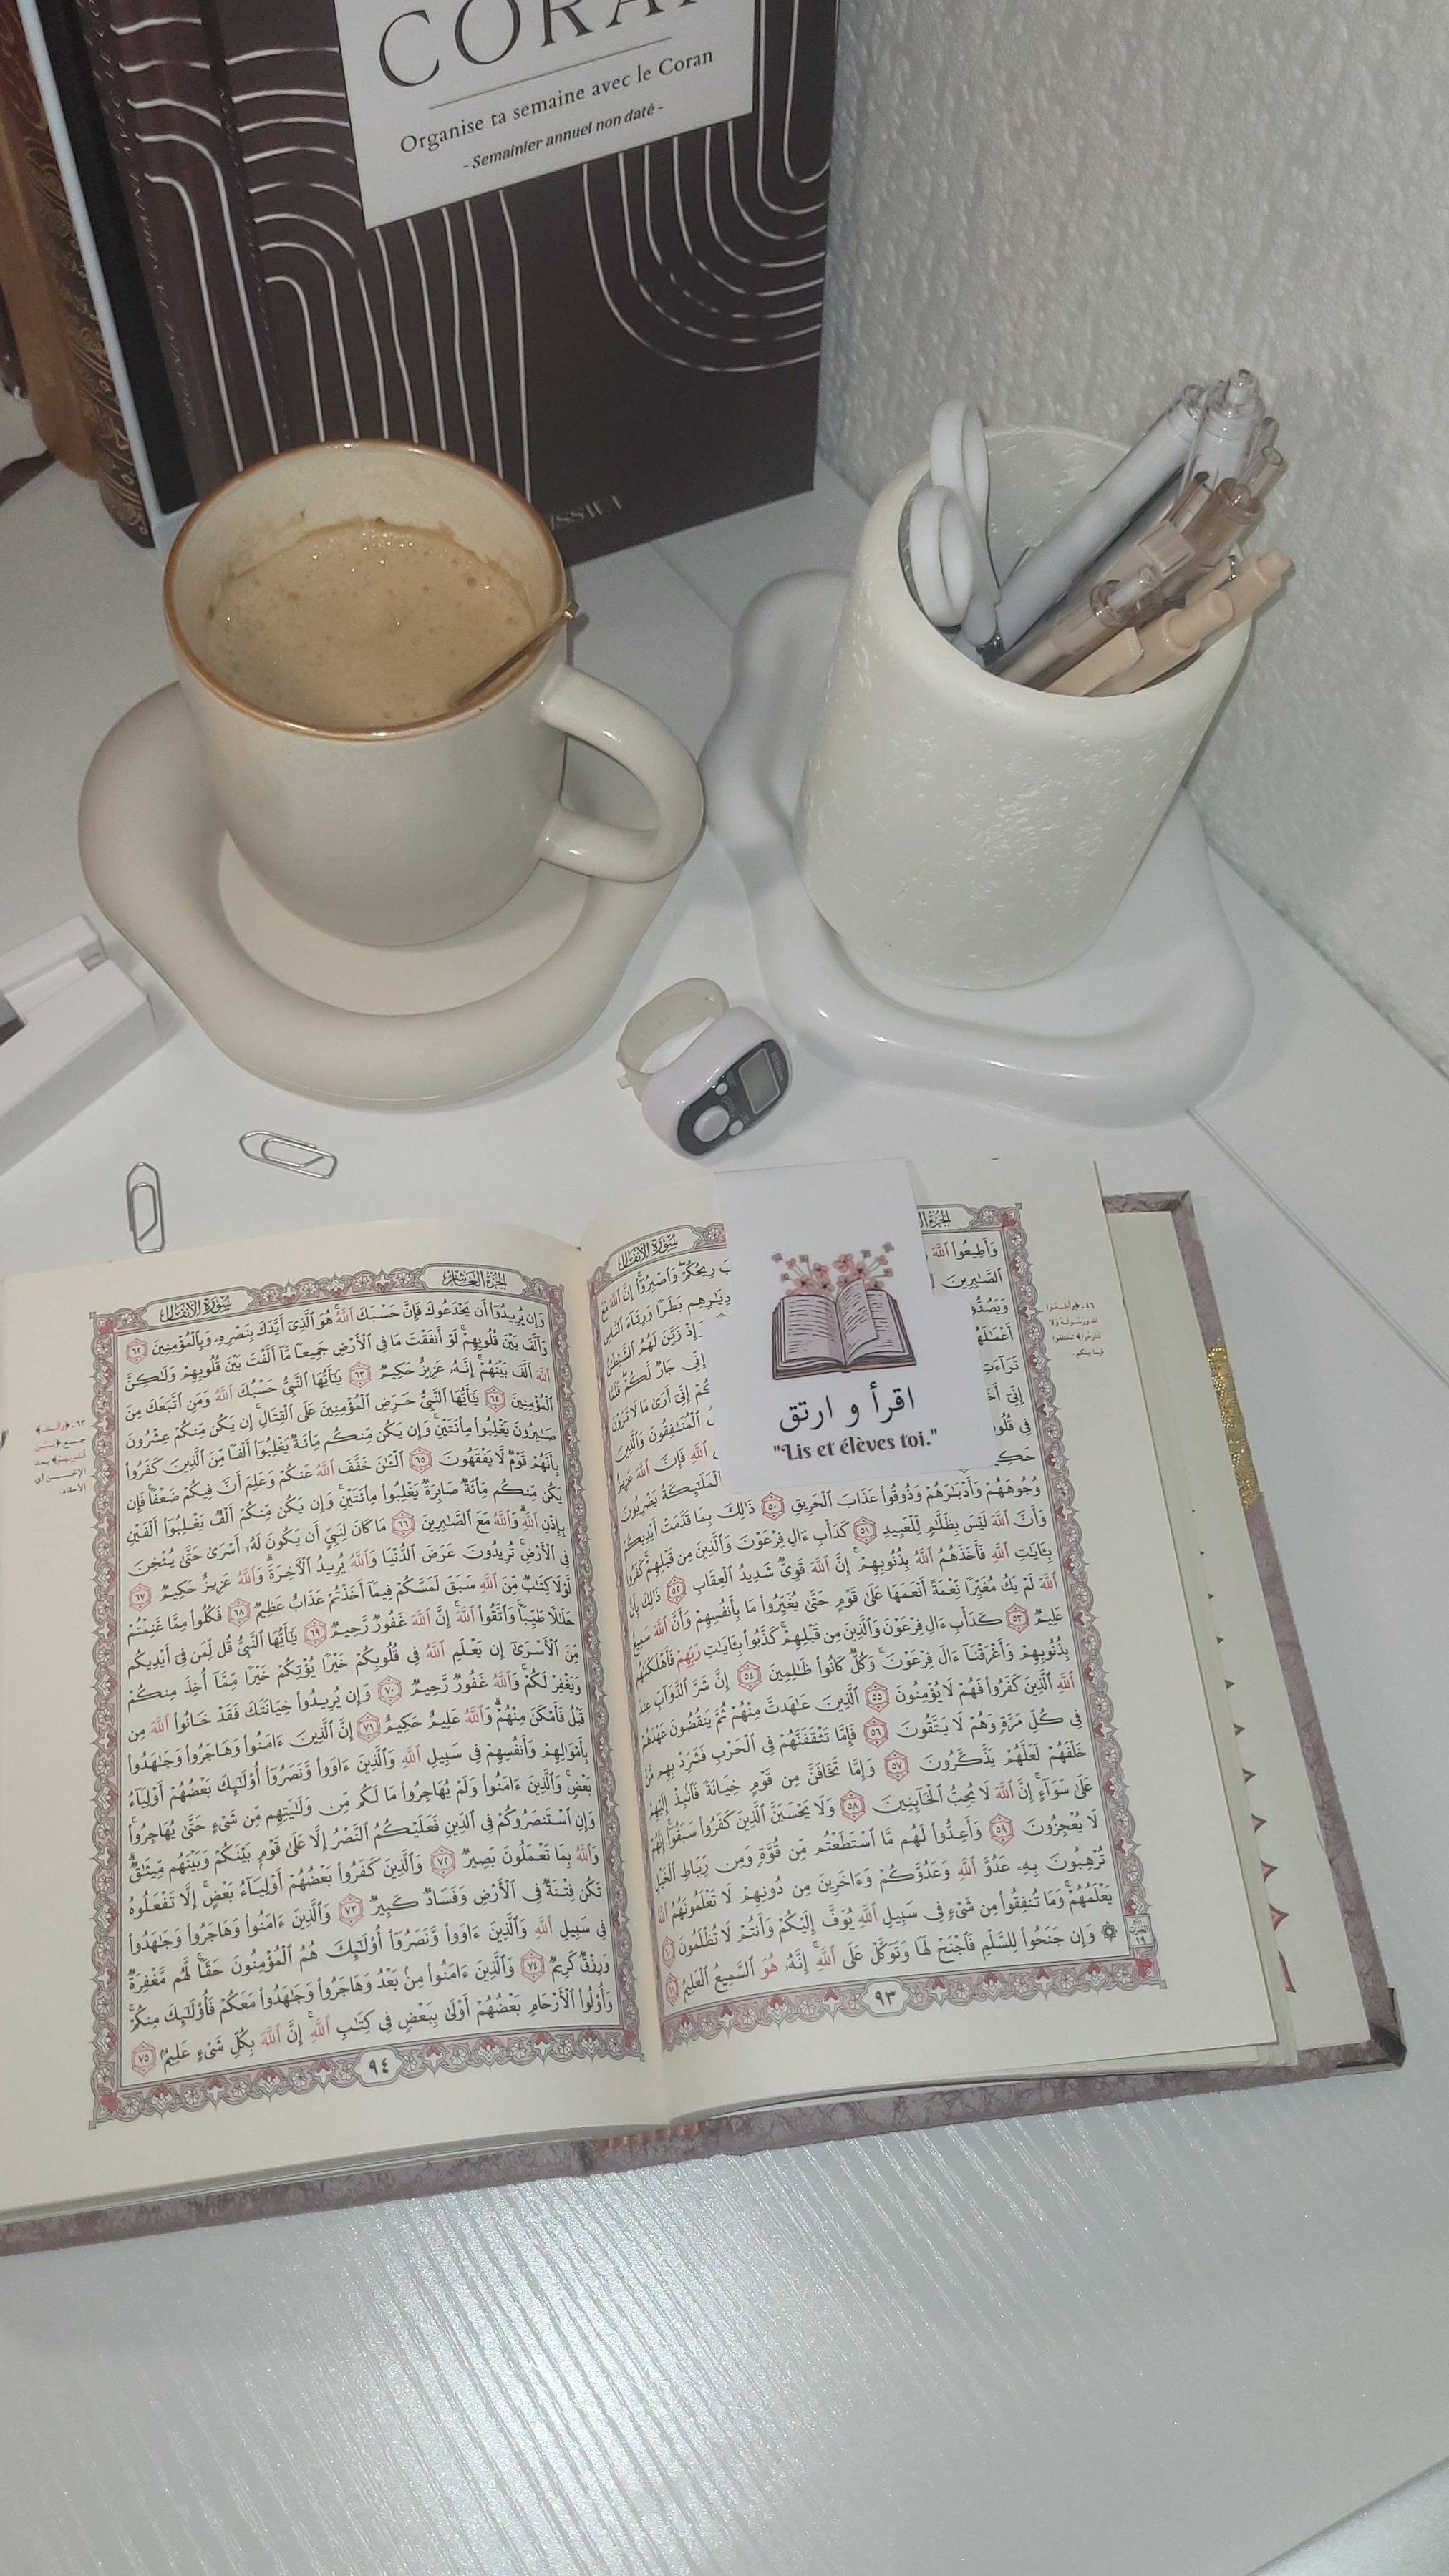 CORAN
Organise ta semaine avec le Coran
- Semainier annuel non daté -
سُورَةُ الأَنفَال
وَأَطِيعُوا۟ ٱللَّهَ رِيحُكُمْ ۖ وَٱصْبِرُوٓا۟ ۚ إِنَّ ٱللَّهَ مَعَ
ٱلصَّـٰبِرِينَ دِيَـٰرِهِم بَطَرًا وَرِئَآءَ ٱلنَّاسِ
إِذْ زَيَّنَ لَهُمُ ٱلشَّيْطَـٰنُ
إِنِّى جَارٌ لَّكُمْ ۖ فَلَمَّا
تَرَآءَتِ إِنِّىٓ أَرَىٰ مَا لَا تَرَوْنَ
إِنِّىٓ ٱلْمُنَـٰفِقُونَ وَٱلَّذِينَ
فِى ٱللَّهِ فَإِنَّ ٱللَّهَ عَزِيزٌ
ٱلْمَلَـٰٓئِكَةُ يَضْرِبُونَ
وُجُوهَهُمْ وَأَدْبَـٰرَهُمْ وَذُوقُوا۟ عَذَابَ ٱلْحَرِيقِ ٥٠ ذَٰلِكَ بِمَا قَدَّمَتْ أَيْدِيكُمْ
وَأَنَّ ٱللَّهَ لَيْسَ بِظَلَّـٰمٍ لِّلْعَبِيدِ ٥١ كَدَأْبِ ءَالِ فِرْعَوْنَ وَٱلَّذِينَ مِن قَبْلِهِمْ ۚ كَفَرُوا۟
بِـَٔايَـٰتِ ٱللَّهِ فَأَخَذَهُمُ ٱللَّهُ بِذُنُوبِهِمْ ۗ إِنَّ ٱللَّهَ قَوِىٌّ شَدِيدُ ٱلْعِقَابِ ٥٢ ذَٰلِكَ بِأَنَّ
ٱللَّهَ لَمْ يَكُ مُغَيِّرًا نِّعْمَةً أَنْعَمَهَا عَلَىٰ قَوْمٍ حَتَّىٰ يُغَيِّرُوا۟ مَا بِأَنفُسِهِمْ ۙ وَأَنَّ ٱللَّهَ سَمِيعٌ
عَلِيمٌ ٥٣ كَدَأْبِ ءَالِ فِرْعَوْنَ ۙ وَٱلَّذِينَ مِن قَبْلِهِمْ ۚ كَذَّبُوا۟ بِـَٔايَـٰتِ رَبِّهِمْ فَأَهْلَكْنَـٰهُم
بِذُنُوبِهِمْ وَأَغْرَقْنَآ ءَالَ فِرْعَوْنَ ۚ وَكُلٌّ كَانُوا۟ ظَـٰلِمِينَ ٥٤ إِنَّ شَرَّ ٱلدَّوَآبِّ عِندَ
ٱللَّهِ ٱلَّذِينَ كَفَرُوا۟ فَهُمْ لَا يُؤْمِنُونَ ٥٥ ٱلَّذِينَ عَـٰهَدتَّ مِنْهُمْ ثُمَّ يَنقُضُونَ عَهْدَهُمْ
فِى كُلِّ مَرَّةٍ وَهُمْ لَا يَتَّقُونَ ٥٦ فَإِمَّا تَثْقَفَنَّهُمْ فِى ٱلْحَرْبِ فَشَرِّدْ بِهِم مَّنْ
خَلْفَهُمْ لَعَلَّهُمْ يَذَّكَّرُونَ ٥٧ وَإِمَّا تَخَافَنَّ مِن قَوْمٍ خِيَانَةً فَٱنۢبِذْ إِلَيْهِمْ
عَلَىٰ سَوَآءٍ ۚ إِنَّ ٱللَّهَ لَا يُحِبُّ ٱلْخَآئِنِينَ ٥٨ وَلَا يَحْسَبَنَّ ٱلَّذِينَ كَفَرُوا۟ سَبَقُوٓا۟ ۚ إِنَّهُمْ
لَا يُعْجِزُونَ ٥٩ وَأَعِدُّوا۟ لَهُم مَّا ٱسْتَطَعْتُم مِّن قُوَّةٍ وَمِن رِّبَاطِ ٱلْخَيْلِ
تُرْهِبُونَ بِهِۦ عَدُوَّ ٱللَّهِ وَعَدُوَّكُمْ وَءَاخَرِينَ مِن دُونِهِمْ لَا تَعْلَمُونَهُمُ ٱللَّهُ
يَعْلَمُهُمْ ۚ وَمَا تُنفِقُوا۟ مِن شَىْءٍ فِى سَبِيلِ ٱللَّهِ يُوَفَّ إِلَيْكُمْ وَأَنتُمْ لَا تُظْلَمُونَ ٦٠
۞ وَإِن جَنَحُوا۟ لِلسَّلْمِ فَٱجْنَحْ لَهَا وَتَوَكَّلْ عَلَى ٱللَّهِ ۚ إِنَّهُۥ هُوَ ٱلسَّمِيعُ ٱلْعَلِيمُ ٦١
٩٣
اقرأ و ارتق
"Lis et élèves toi."
الجُزءُ العَاشِرُ
سُورَةُ الأَنفَال
وَإِن يُرِيدُوٓا۟ أَن يَخْدَعُوكَ فَإِنَّ حَسْبَكَ ٱللَّهُ ۚ هُوَ ٱلَّذِىٓ أَيَّدَكَ بِنَصْرِهِۦ وَبِٱلْمُؤْمِنِينَ ٦٢
وَأَلَّفَ بَيْنَ قُلُوبِهِمْ ۚ لَوْ أَنفَقْتَ مَا فِى ٱلْأَرْضِ جَمِيعًا مَّآ أَلَّفْتَ بَيْنَ قُلُوبِهِمْ وَلَـٰكِنَّ
ٱللَّهَ أَلَّفَ بَيْنَهُمْ ۚ إِنَّهُۥ عَزِيزٌ حَكِيمٌ ٦٣ يَـٰٓأَيُّهَا ٱلنَّبِىُّ حَسْبُكَ ٱللَّهُ وَمَنِ ٱتَّبَعَكَ مِنَ
ٱلْمُؤْمِنِينَ ٦٤ يَـٰٓأَيُّهَا ٱلنَّبِىُّ حَرِّضِ ٱلْمُؤْمِنِينَ عَلَى ٱلْقِتَالِ ۚ إِن يَكُن مِّنكُمْ عِشْرُونَ
صَـٰبِرُونَ يَغْلِبُوا۟ مِا۟ئَتَيْنِ ۚ وَإِن يَكُن مِّنكُم مِّا۟ئَةٌ يَغْلِبُوٓا۟ أَلْفًا مِّنَ ٱلَّذِينَ كَفَرُوا۟
بِأَنَّهُمْ قَوْمٌ لَّا يَفْقَهُونَ ٦٥ ٱلْـَٔـٰنَ خَفَّفَ ٱللَّهُ عَنكُمْ وَعَلِمَ أَنَّ فِيكُمْ ضَعْفًا ۚ فَإِن
يَكُن مِّنكُم مِّا۟ئَةٌ صَابِرَةٌ يَغْلِبُوا۟ مِا۟ئَتَيْنِ ۚ وَإِن يَكُن مِّنكُمْ أَلْفٌ يَغْلِبُوٓا۟ أَلْفَيْنِ
بِإِذْنِ ٱللَّهِ ۗ وَٱللَّهُ مَعَ ٱلصَّـٰبِرِينَ ٦٦ مَا كَانَ لِنَبِىٍّ أَن يَكُونَ لَهُۥٓ أَسْرَىٰ حَتَّىٰ يُثْخِنَ
فِى ٱلْأَرْضِ ۚ تُرِيدُونَ عَرَضَ ٱلدُّنْيَا وَٱللَّهُ يُرِيدُ ٱلْـَٔاخِرَةَ ۗ وَٱللَّهُ عَزِيزٌ حَكِيمٌ ٦٧
لَّوْلَا كِتَـٰبٌ مِّنَ ٱللَّهِ سَبَقَ لَمَسَّكُمْ فِيمَآ أَخَذْتُمْ عَذَابٌ عَظِيمٌ ٦٨ فَكُلُوا۟ مِمَّا غَنِمْتُمْ
حَلَـٰلًا طَيِّبًا ۚ وَٱتَّقُوا۟ ٱللَّهَ ۚ إِنَّ ٱللَّهَ غَفُورٌ رَّحِيمٌ ٦٩ يَـٰٓأَيُّهَا ٱلنَّبِىُّ قُل لِّمَن فِىٓ أَيْدِيكُم
مِّنَ ٱلْأَسْرَىٰٓ إِن يَعْلَمِ ٱللَّهُ فِى قُلُوبِكُمْ خَيْرًا يُؤْتِكُمْ خَيْرًا مِّمَّآ أُخِذَ مِنكُمْ
وَيَغْفِرْ لَكُمْ ۗ وَٱللَّهُ غَفُورٌ رَّحِيمٌ ٧٠ وَإِن يُرِيدُوا۟ خِيَانَتَكَ فَقَدْ خَانُوا۟ ٱللَّهَ مِن
قَبْلُ فَأَمْكَنَ مِنْهُمْ ۗ وَٱللَّهُ عَلِيمٌ حَكِيمٌ ٧١ إِنَّ ٱلَّذِينَ ءَامَنُوا۟ وَهَاجَرُوا۟ وَجَـٰهَدُوا۟
بِأَمْوَٰلِهِمْ وَأَنفُسِهِمْ فِى سَبِيلِ ٱللَّهِ وَٱلَّذِينَ ءَاوَوا۟ وَّنَصَرُوٓا۟ أُو۟لَـٰٓئِكَ بَعْضُهُمْ أَوْلِيَآءُ
بَعْضٍ ۚ وَٱلَّذِينَ ءَامَنُوا۟ وَلَمْ يُهَاجِرُوا۟ مَا لَكُم مِّن وَلَـٰيَتِهِم مِّن شَىْءٍ حَتَّىٰ يُهَاجِرُوا۟ ۚ
وَإِنِ ٱسْتَنصَرُوكُمْ فِى ٱلدِّينِ فَعَلَيْكُمُ ٱلنَّصْرُ إِلَّا عَلَىٰ قَوْمٍۭ بَيْنَكُمْ وَبَيْنَهُم مِّيثَـٰقٌ ۗ
وَٱللَّهُ بِمَا تَعْمَلُونَ بَصِيرٌ ٧٢ وَٱلَّذِينَ كَفَرُوا۟ بَعْضُهُمْ أَوْلِيَآءُ بَعْضٍ ۚ إِلَّا تَفْعَلُوهُ
تَكُن فِتْنَةٌ فِى ٱلْأَرْضِ وَفَسَادٌ كَبِيرٌ ٧٣ وَٱلَّذِينَ ءَامَنُوا۟ وَهَاجَرُوا۟ وَجَـٰهَدُوا۟
فِى سَبِيلِ ٱللَّهِ وَٱلَّذِينَ ءَاوَوا۟ وَّنَصَرُوٓا۟ أُو۟لَـٰٓئِكَ هُمُ ٱلْمُؤْمِنُونَ حَقًّا ۚ لَّهُم مَّغْفِرَةٌ
وَرِزْقٌ كَرِيمٌ ٧٤ وَٱلَّذِينَ ءَامَنُوا۟ مِنۢ بَعْدُ وَهَاجَرُوا۟ وَجَـٰهَدُوا۟ مَعَكُمْ فَأُو۟لَـٰٓئِكَ مِنكُمْ ۚ
وَأُو۟لُوا۟ ٱلْأَرْحَامِ بَعْضُهُمْ أَوْلَىٰ بِبَعْضٍ فِى كِتَـٰبِ ٱللَّهِ ۗ إِنَّ ٱللَّهَ بِكُلِّ شَىْءٍ عَلِيمٌۢ ٧٥
٩٤